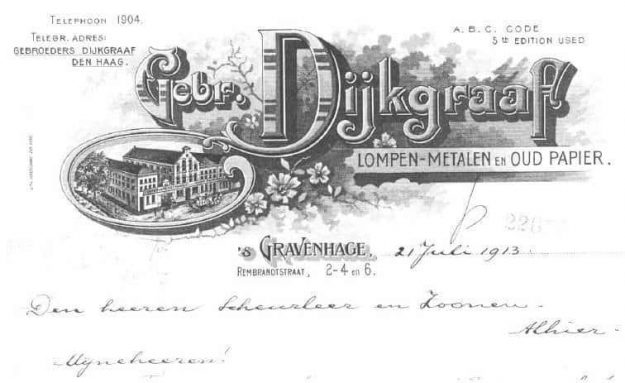 TELEPHOON 1904.
TELEGR. ADRES:
GEBROEDERS DIJKGRAAF
DEN HAAG.
A. B. C. CODE
5th EDITION USED
Gebr. Dijkgraaf
LOMPEN-METALEN EN OUD PAPIER.
's GRAVENHAGE, 21 Juli 1913
REMBRANDTSTRAAT, 2-4 en 6.
Den heeren Scheurleer en Zoonen.
Alhier.
Mijneheeren!